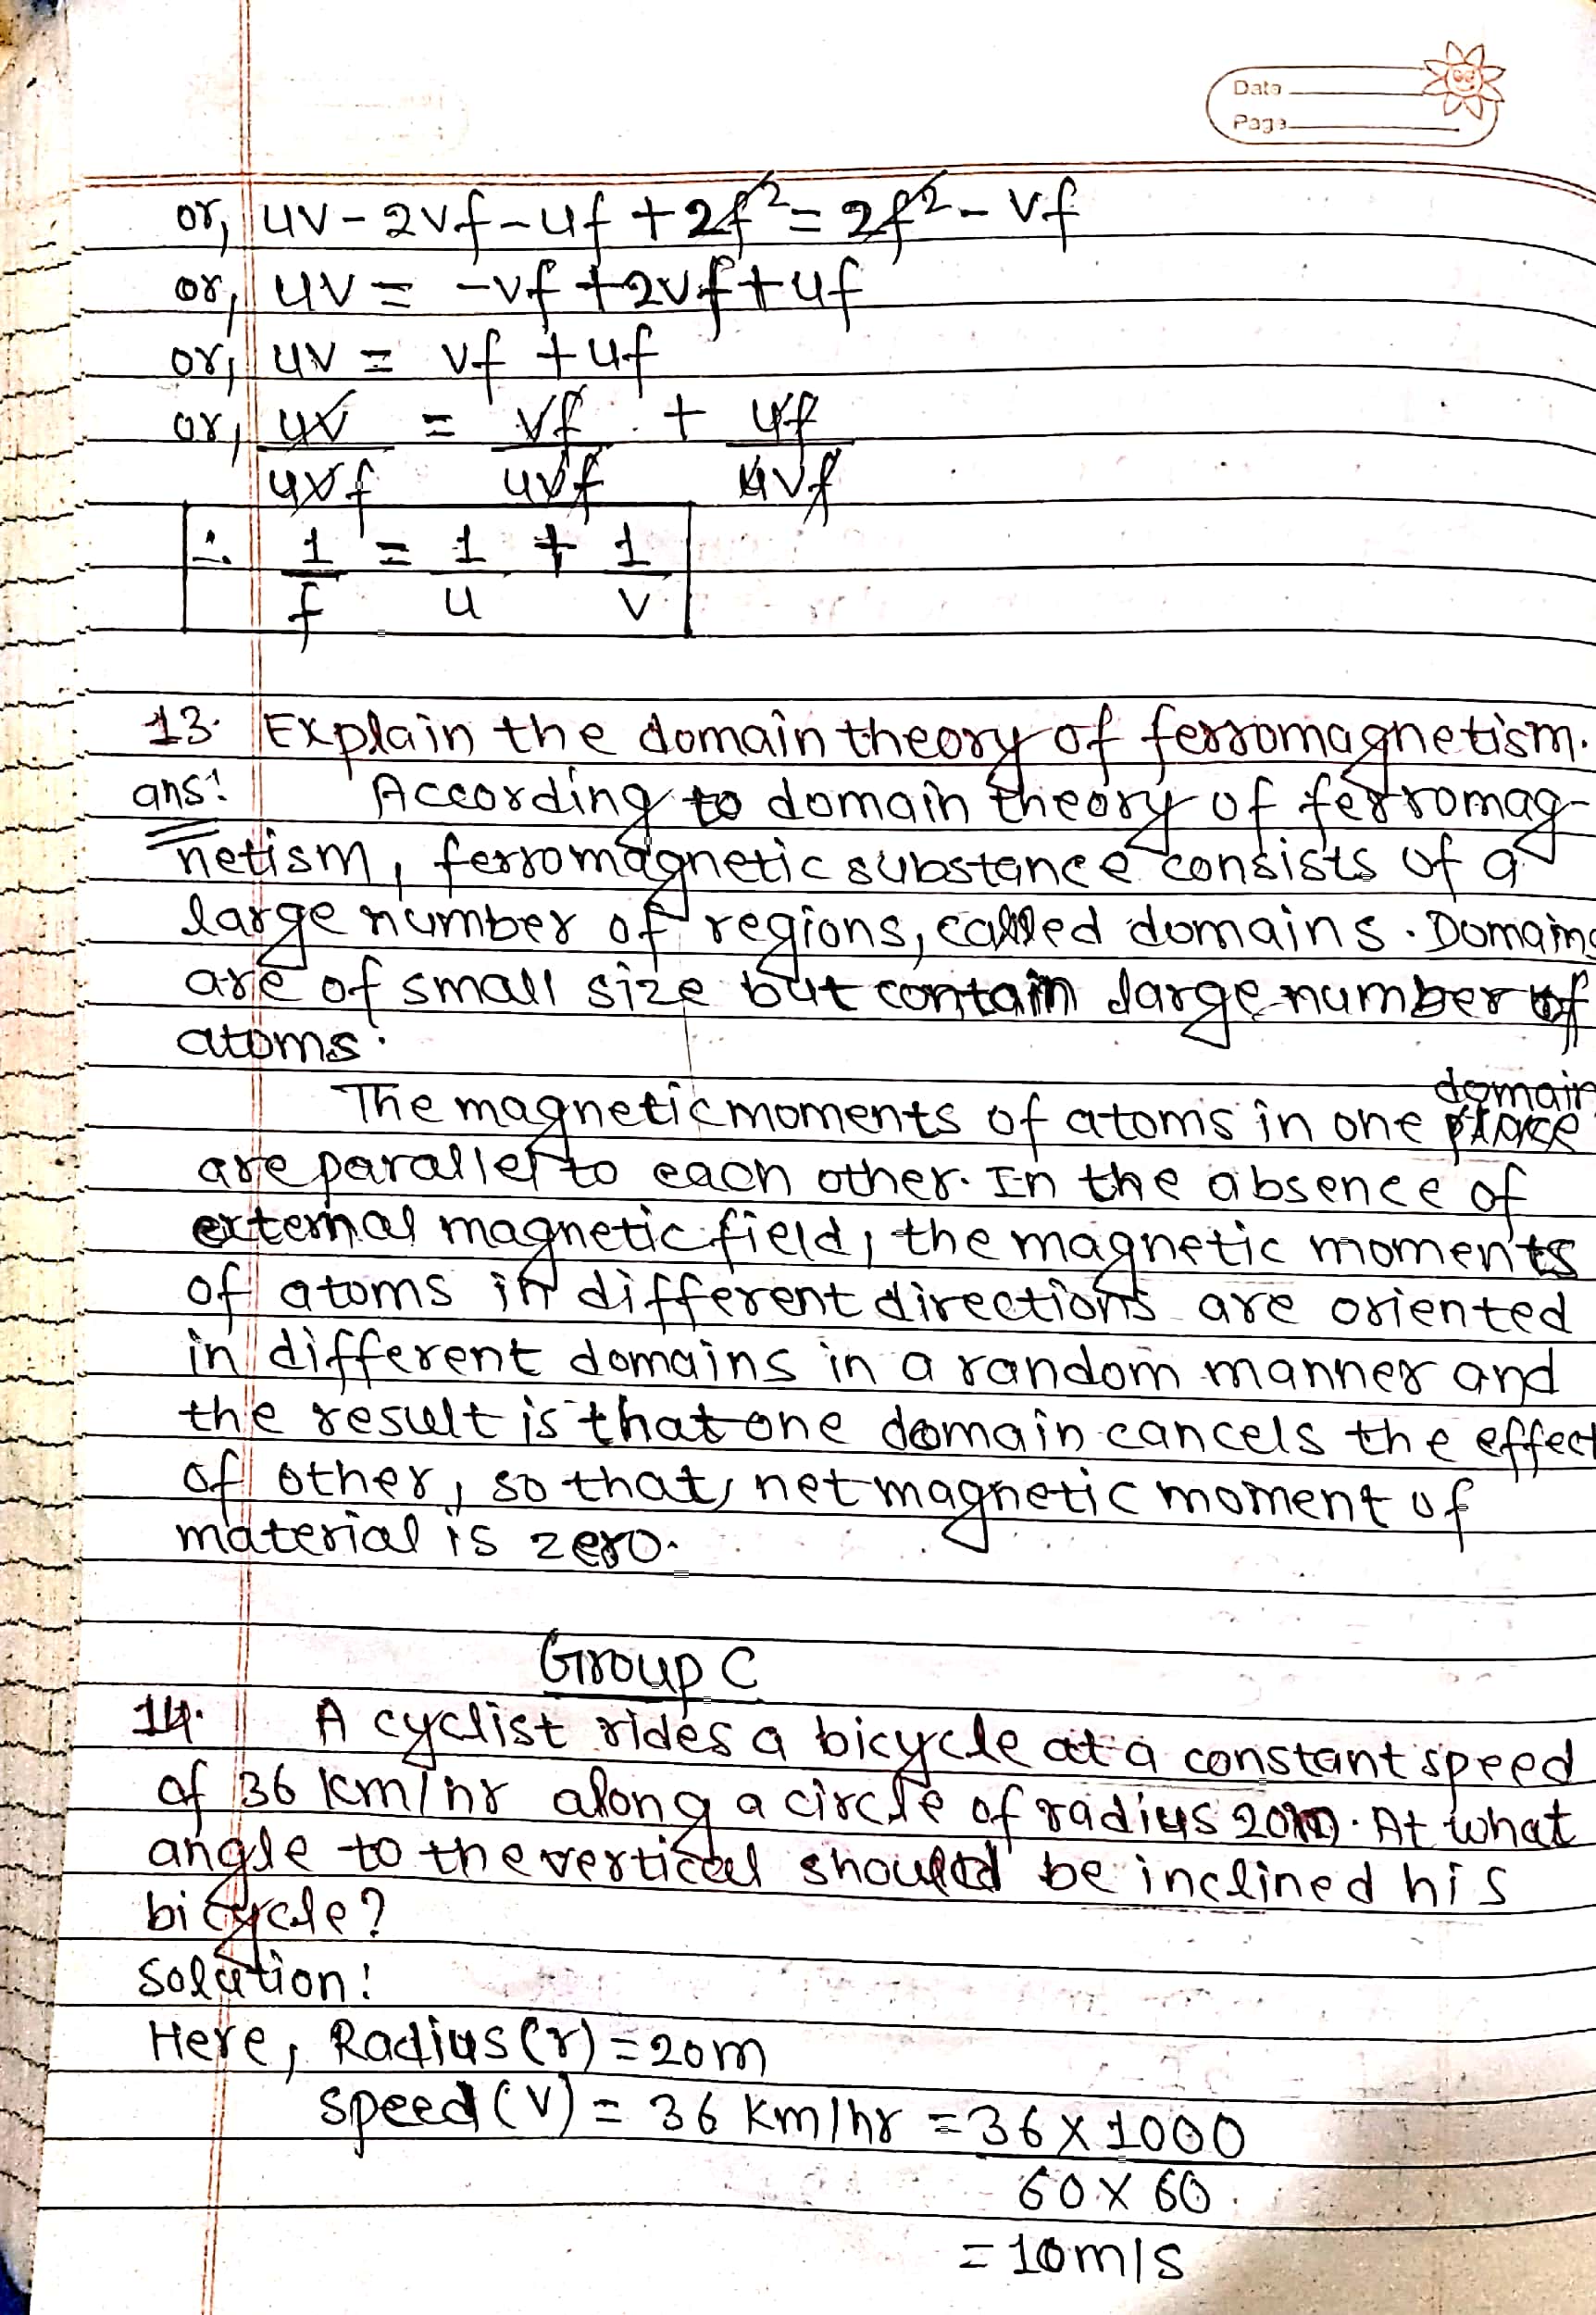 Date
Page
or, uv - 2vf - uf + 2f² = 2f² - vf
or, uv = -vf + 2vf + uf
or, uv = vf + uf
or, uv/uvf = vf/uvf + uf/uvf
∴ 1/f = 1/u + 1/v
13. Explain the domain theory of ferromagnetism.
ans: According to domain theory of ferromag-
netism, ferromagnetic substance consists of a
large number of regions, called domains. Domains
are of small size but contain large number of
atoms.
domain
The magnetic moments of atoms in one place
are parallel to each other. In the absence of
external magnetic field, the magnetic moments
of atoms in different directions are oriented
in different domains in a random manner and
the result is that one domain cancels the effect
of other, so that, net magnetic moment of
material is zero.
Group C
14. A cyclist rides a bicycle at a constant speed
of 36 km/hr along a circle of radius 20m. At what
angle to the vertical should be inclined his
bicycle?
Solution:
Here, Radius (r) = 20m
speed (v) = 36 km/hr = 36 x 1000
60 x 60
= 10m/s